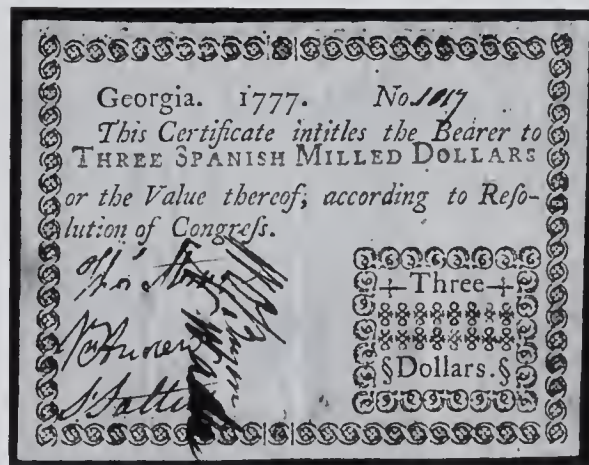 Georgia. 1777. No. 1017
This Certificate intitles the Bearer to
THREE SPANISH MILLED DOLLARS
or the Value thereof; according to Reſo-
lution of Congreſs.
Three
§Dollars.§